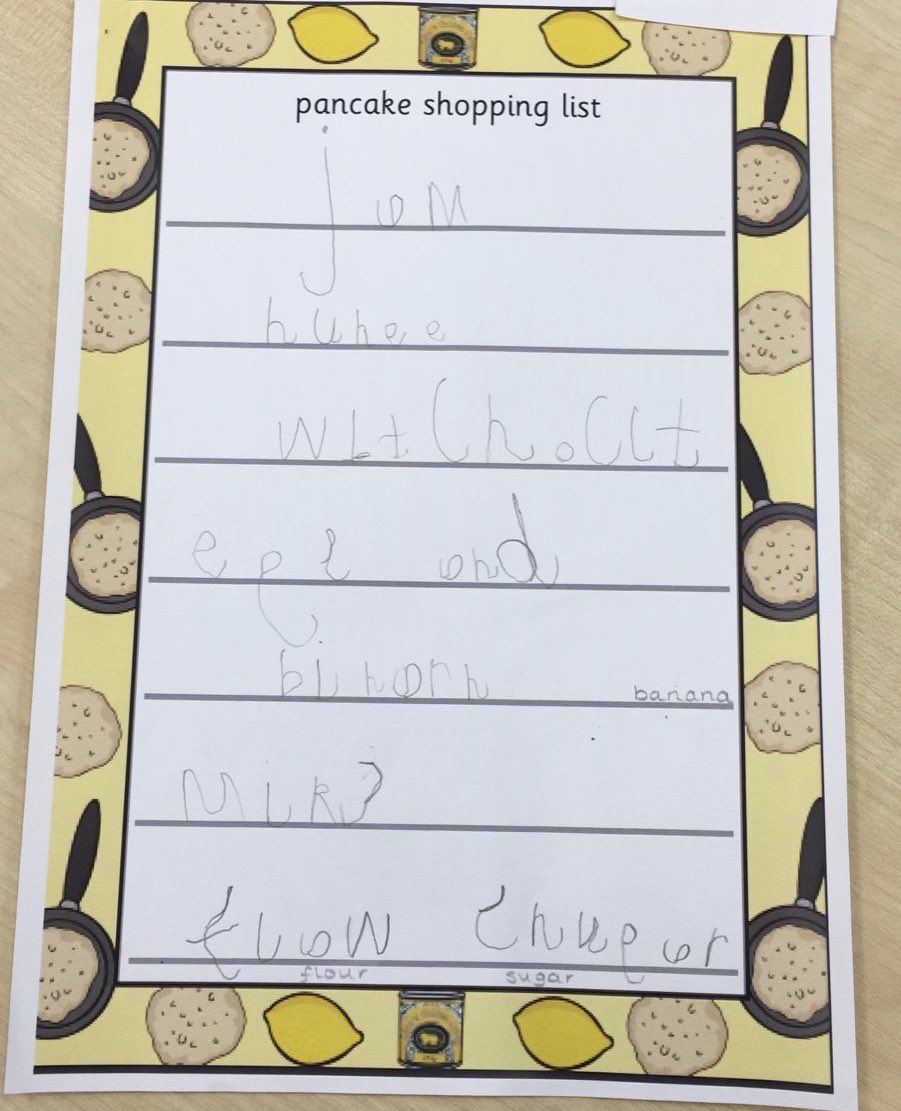 pancake shopping list
jam
hunee
witchoclt
and
binarn
banana
flaw chugar
flour sugar